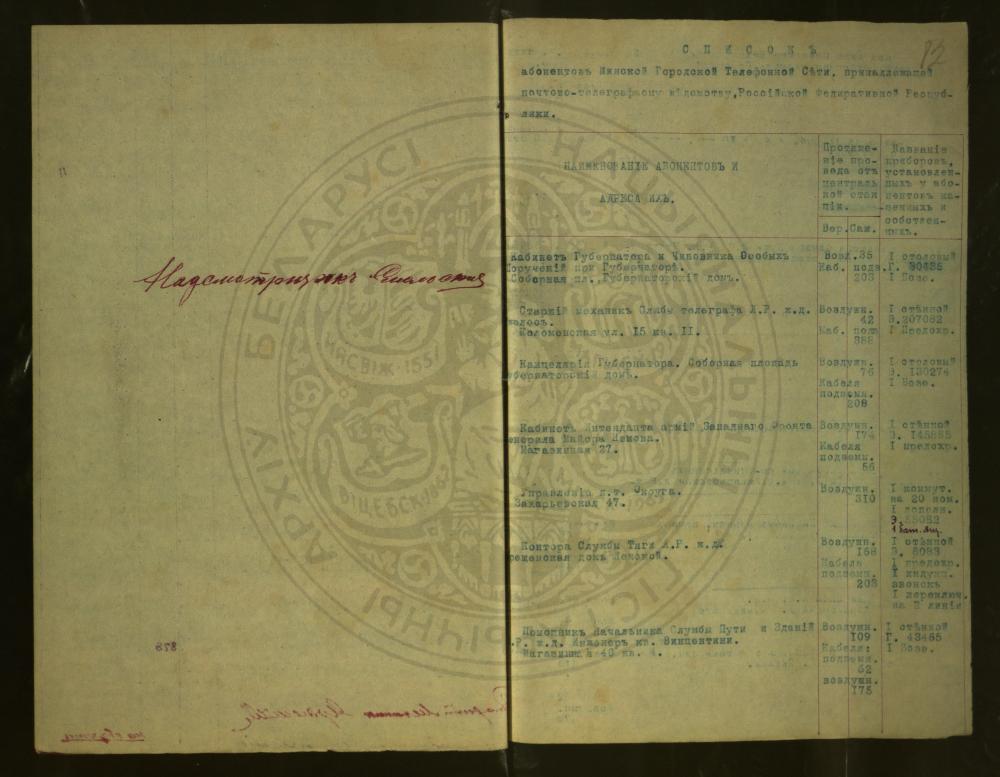 Надсмотрщикъ
12
СПИСОКЪ
абонентовъ Минской Городской Телефонной Сѣти, принадлежащей
почтово-телеграфному вѣдомству, Россійской Федеративной Респуб-
лики.
НАИМЕНОВАНІЕ АБОНЕНТОВЪ И
АДРЕСА ИХЪ.
Протяже-
ніе про-
вода отъ
централь
ной стан
ціи.
Вер. Саж.
Названіе
приборовъ,
установлен-
ныхъ у або-
нентовъ ка-
зенныхъ и
собствен-
ныхъ.
Кабинетъ Губернатора и Чиновника Особыхъ
Порученій при Губернаторѣ.
Соборная пл., Губернаторскій домъ.
Возд. 35
Каб. подз.
203
I столовый
Г. 30485
I Возе.
Старшій механикъ Службы телеграфа Л.Р. ж.д.
Коломенская ул. 15 кв. 11.
Воздушн.
42
Каб. подз
388
I стѣнной
Э. 207082
I Предохр.
Канцелярія Губернатора. Соборная площадь
убернаторскій домъ.
Воздушн.
76
Кабеля
подземн.
208
I столовый
Э. 130274
I Возе.
Кабинетъ Интенданта армій Западнаго Фронта
енерала Майора
Магазинная 27.
Воздушн.
174
Кабеля
подземн.
56
I стѣнной
Э. 145855
I предохр.
Управленіе п.т. Округа.
Захарьевская 47.
Воздушн.
310
I коммут.
на 20 ном.
I дополн.
Э. 58082
Контора Службы Тяги Л.Р. ж.д.
домъ
Воздушн.
168
Кабеля
подземн.
203
I стѣнной
Э. 8083
I предохр.
I индукт.
звонокъ
I переключ.
на 2 линіи
Помощникъ Начальника Службы Пути и Зданій
.Р. ж.д. Инженеръ кв. Винцентини.
Магазинная 40 кв. 4.
Воздушн.
109
Кабеля:
подземн.
62
воздушн.
175
I стѣнной
Г. 43485
I Возе.
АРХІЎ БЕЛАРУСІ
НАЦЫЯНАЛЬНЫ ГІСТАРЫЧНЫ
НЯСВІЖ·1557
ВІЦЕБСК